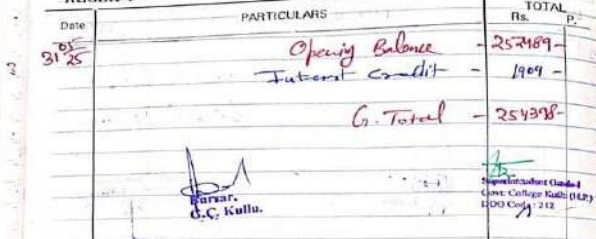 TOTAL
Date PARTICULARS Rs. P.
31 05 25 Opening Balance - 252489-
Interest Credit - 1909-
G. Total - 254398-
Bursar.
G.C. Kullu.
Superintendent Grade-I
Govt. College Kullu (H.P.)
DDO Code: 212